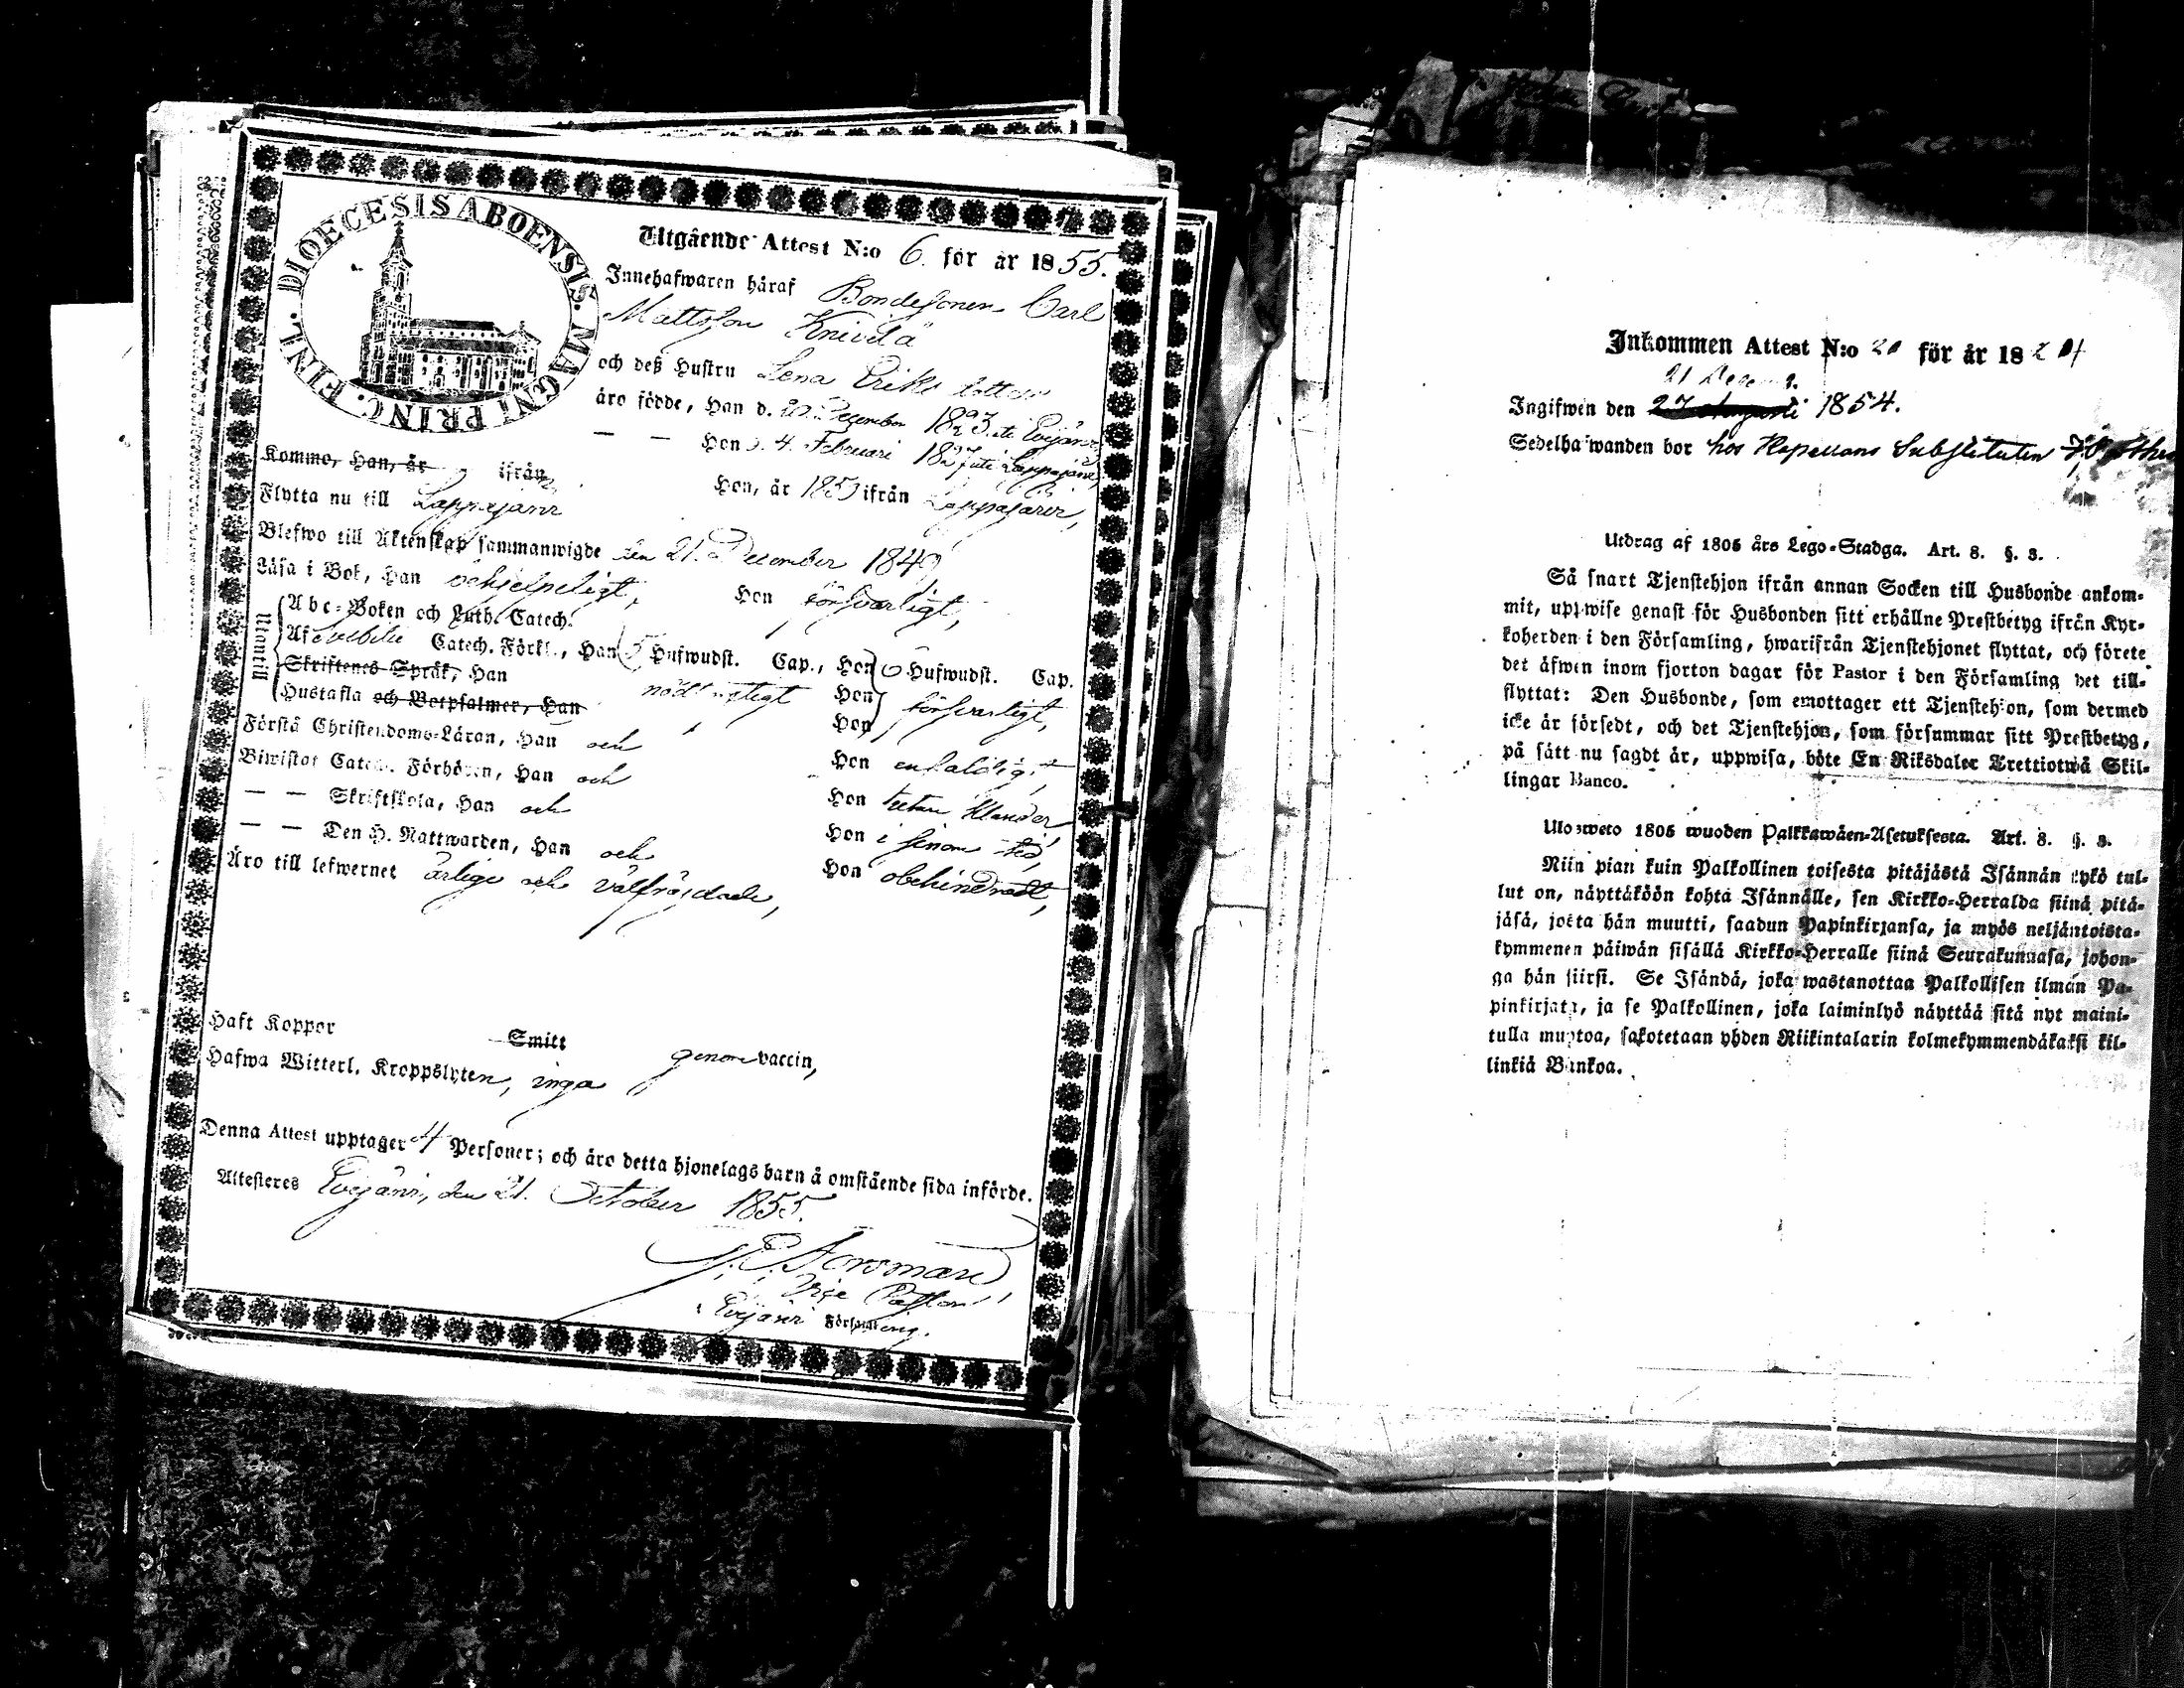 DIOECESIS ABOENSIS. MAGNI PRINC. FINL.
Utgående Attest N:o 6. för år 1855.
Innehafwaren häraf Bondesonen Carl
Mattsson Knivilä
och deß Hustru Lena Eriks dotter
äro födde, Han d. 20 December 1823 i Evijärvi
— — Hon d. 4. Februari 1827 uti Lappajärvi
Kommo, Han, år ifrån
Hon, år 1850 ifrån Lappajärvi,
Flytta nu till Lappajärvi
Blefwo till Äktenskap sammanwigde den 21. December 1849
Läsa i Bok, Han behjelpeligt, Hon försvarligt,
Utantill
Abc-Boken och Luth. Catech.
Af Svebilii Catech. Förkl., Han 5 Hufwudst. Cap., Hon 6 Hufwudst. Cap.
Skriftenes Språk, Han Hon
Hustafla och Botpsalmer, Han nödtorftigt Hon försvarligt,
Förstå Christendoms-Läran, Han och Hon enfaldigt,
Biwistat Catech. Förhören, Han och Hon utan klander,
— — Skriftskola, Han och Hon i sinom tid,
— — Den H. Nattwarden, Han och Hon obehindradt,
Äro till lefwernet ärlige och välfräjdade,
Haft Koppor Smitt genom vaccin,
Hafwa Witterl. Kroppslyten, inga
Denna Attest upptager 4 Personer; och äro detta hjonelags barn å omstående sida införde.
Attesteras Evijärvi, den 21. October 1855.
Forsman
Vice Pastor
i Evijärvi Församling.
Inkommen Attest N:o 20 för år 18
21 Decemb.
Ingifwen den 27 Augusti 1854.
Sedelhafwanden bor hos Kapellans Substituten
Utdrag af 1805 års Lego-Stadga. Art. 8. §. 3.
Så snart Tjenstehjon ifrån annan Socken till Husbonde ankom-
mit, uppwise genast för Husbonden sitt erhållne Prestbetyg ifrån Kyr-
koherden i den Församling, hwarifrån Tjenstehjonet flyttat, och förete
det äfwen inom fjorton dagar för Pastor i den Församling det till-
flyttat: Den Husbonde, som emottager ett Tjenstehjon, som dermed
icke är försedt, och det Tjenstehjon, som försummar sitt Prestbetyg,
på sätt nu sagdt är, uppwisa, böte En Riksdaler Trettiotwå Skil-
lingar Banco.
Ulosweto 1805 wuoden Palkkawäen-Asetuksesta. Art. 8. §. 3.
Niin pian kuin Palkollinen toisesta pitäjästä Isännän tykö tul-
lut on, näyttäköön kohta Isännälle, sen Kirkko-Herralda siinä pitä-
jäsä, josta hän muutti, saadun Papinkirjansa, ja myös neljäntoista-
kymmenen päiwän sisällä Kirkko-Herralle siinä Seurakunnasa, johon-
ga hän siirsi. Se Isändä, joka wastanottaa Palkollisen ilman Pa-
pinkirjata, ja se Palkollinen, joka laiminlyö näyttää sitä nyt maini-
tulla muotoa, sakotetaan yhden Riikintalarin kolmekymmendäkaksi kil-
linkiä Bankoa.